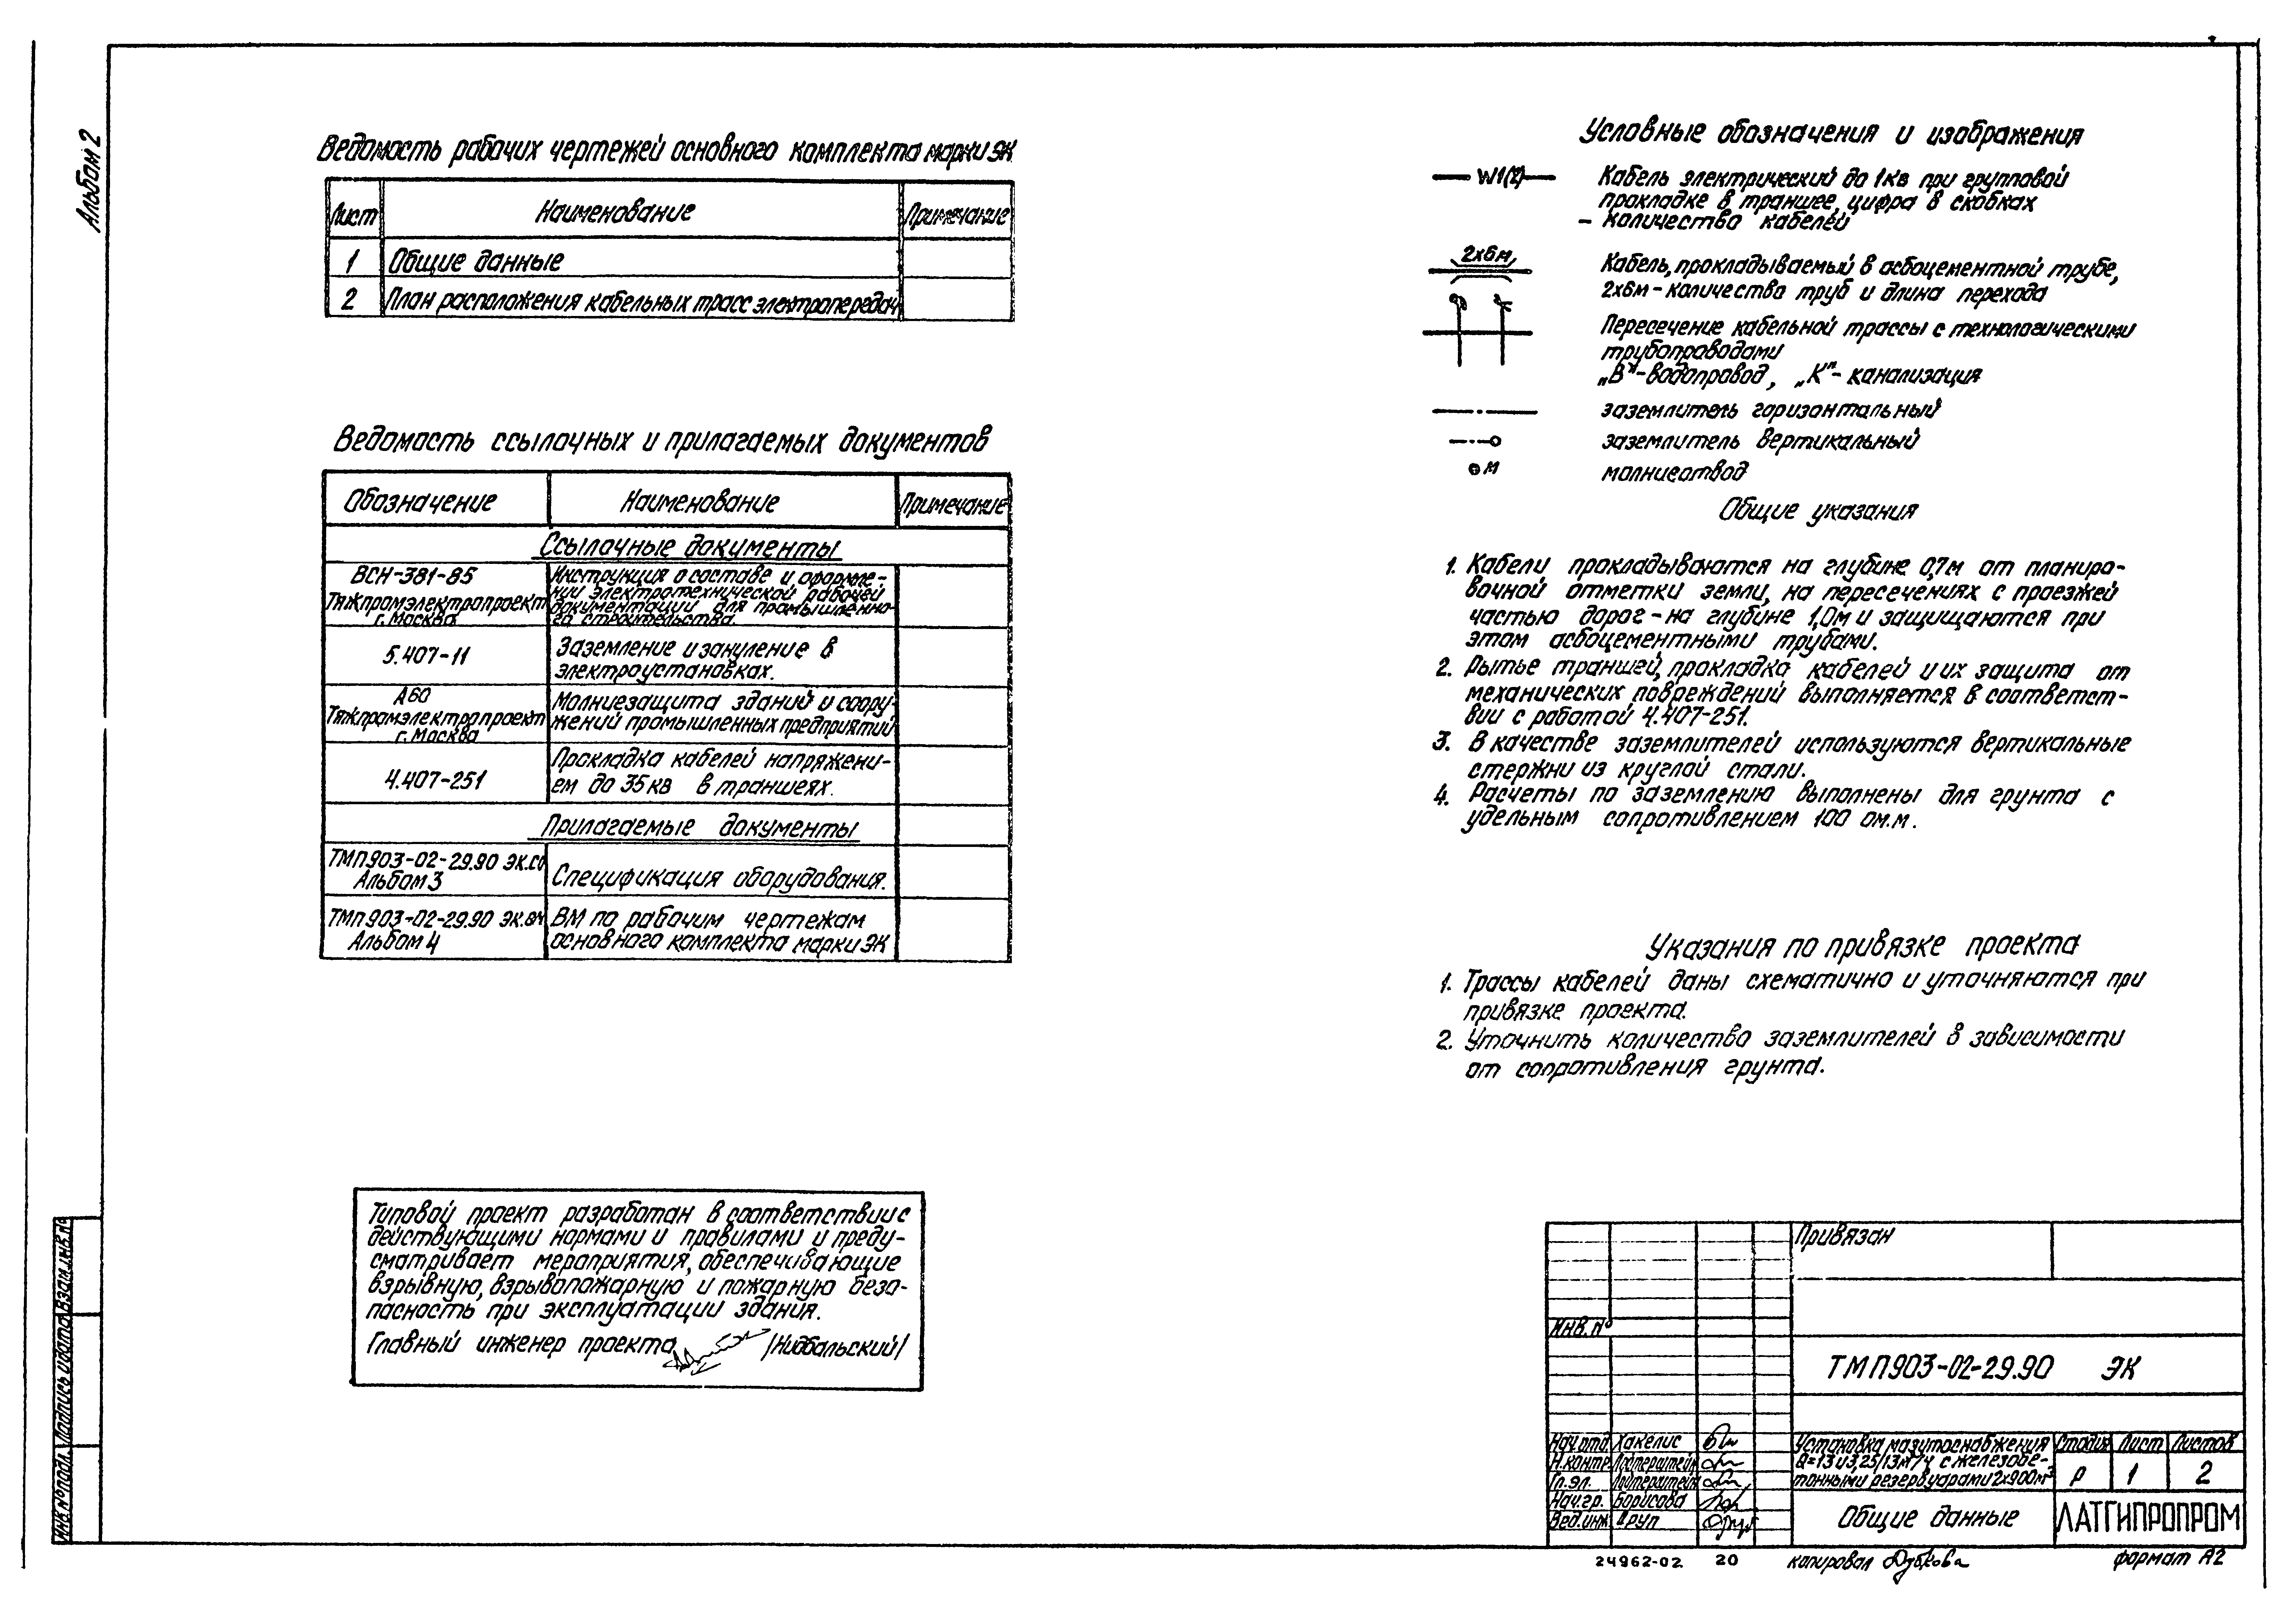 Альбом 2
Ведомость рабочих чертежей основного комплекта марки ЭК
Лист Наименование Примечание
1 Общие данные
2 План расположения кабельных трасс электропередач
Ведомость ссылочных и прилагаемых документов
Обозначение Наименование Примечание
Ссылочные документы
ВСН-381-85
Тяжпромэлектропроект
г. Москва
Инструкция о составе и оформле-
нии электротехнической рабочей
документации для промышленно-
го строительства.
5.407-11
Заземление и зануление в
электроустановках.
А60
Тяжпромэлектропроект
г. Москва
Молниезащита зданий и соору-
жений промышленных предприятий
4.407-251
Прокладка кабелей напряжени-
ем до 35кв в траншеях.
Прилагаемые документы
ТМП903-02-29.90 ЭК.СО
Альбом 3
Спецификация оборудования.
ТМП903-02-29.90 ЭК.ВМ
Альбом 4
ВМ по рабочим чертежам
основного комплекта марки ЭК
Типовой проект разработан в соответствии с
действующими нормами и правилами и преду-
сматривает мероприятия, обеспечивающие
взрывную, взрывопожарную и пожарную безо-
пасность при эксплуатации здания.
Главный инженер проекта /Нидбальский/
Условные обозначения и изображения
W1(2)
Кабель электрический до 1кв при групповой
прокладке в траншее, цифра в скобках
- количество кабелей
2х6м
Кабель, прокладываемый в асбоцементной трубе,
2х6м - количество труб и длина перехода
Пересечение кабельной трассы с технологическими
трубопроводами
„В"-водопровод, „К"- канализация
заземлитель горизонтальный
заземлитель вертикальный
М
молниеотвод
Общие указания
1. Кабели прокладываются на глубине 0,7м от планиро-
вочной отметки земли, на пересечениях с проезжей
частью дорог - на глубине 1,0м и защищаются при
этом асбоцементными трубами.
2. Рытье траншей, прокладка кабелей и их защита от
механических повреждений выполняется в соответст-
вии с работой 4.407-251.
3. В качестве заземлителей используются вертикальные
стержни из круглой стали.
4. Расчеты по заземлению выполнены для грунта с
удельным сопротивлением 100 ом.м.
Указания по привязке проекта
1. Трассы кабелей даны схематично и уточняются при
привязке проекта.
2. Уточнить количество заземлителей в зависимости
от сопротивления грунта.
Инв.№подл. Подпись и дата Взам.инв.№
Привязан
Инв.№
ТМП903-02-29.90 ЭК
Нач.отд. Хакелис
Н.контр.
Гл.эл.
Нач.гр. Борисова
Вед.инж.
Установка мазутоснабжения
Q=13 и 3,25/13м³/ч с железобе-
тонными резервуарами 2х900м³
Стадия Лист Листов
Р 1 2
Общие данные
ЛАТГИПРОПРОМ
24962-02 20 копировал Дубкова формат А2